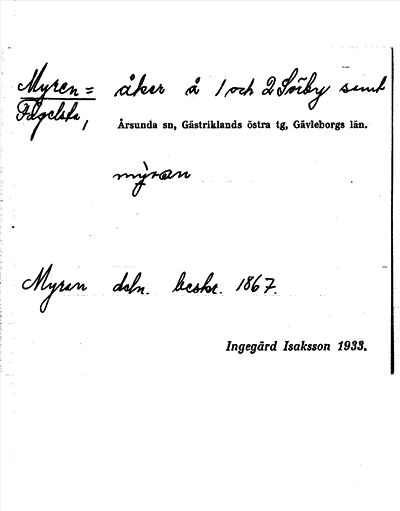 Myren = åker å 1 och 2 Sörby samt
Fågelsta,
Årsunda sn, Gästriklands östra tg, Gävleborgs län.
mỳran
Myran dsln. beskr. 1867.
Ingegärd Isaksson 1933.